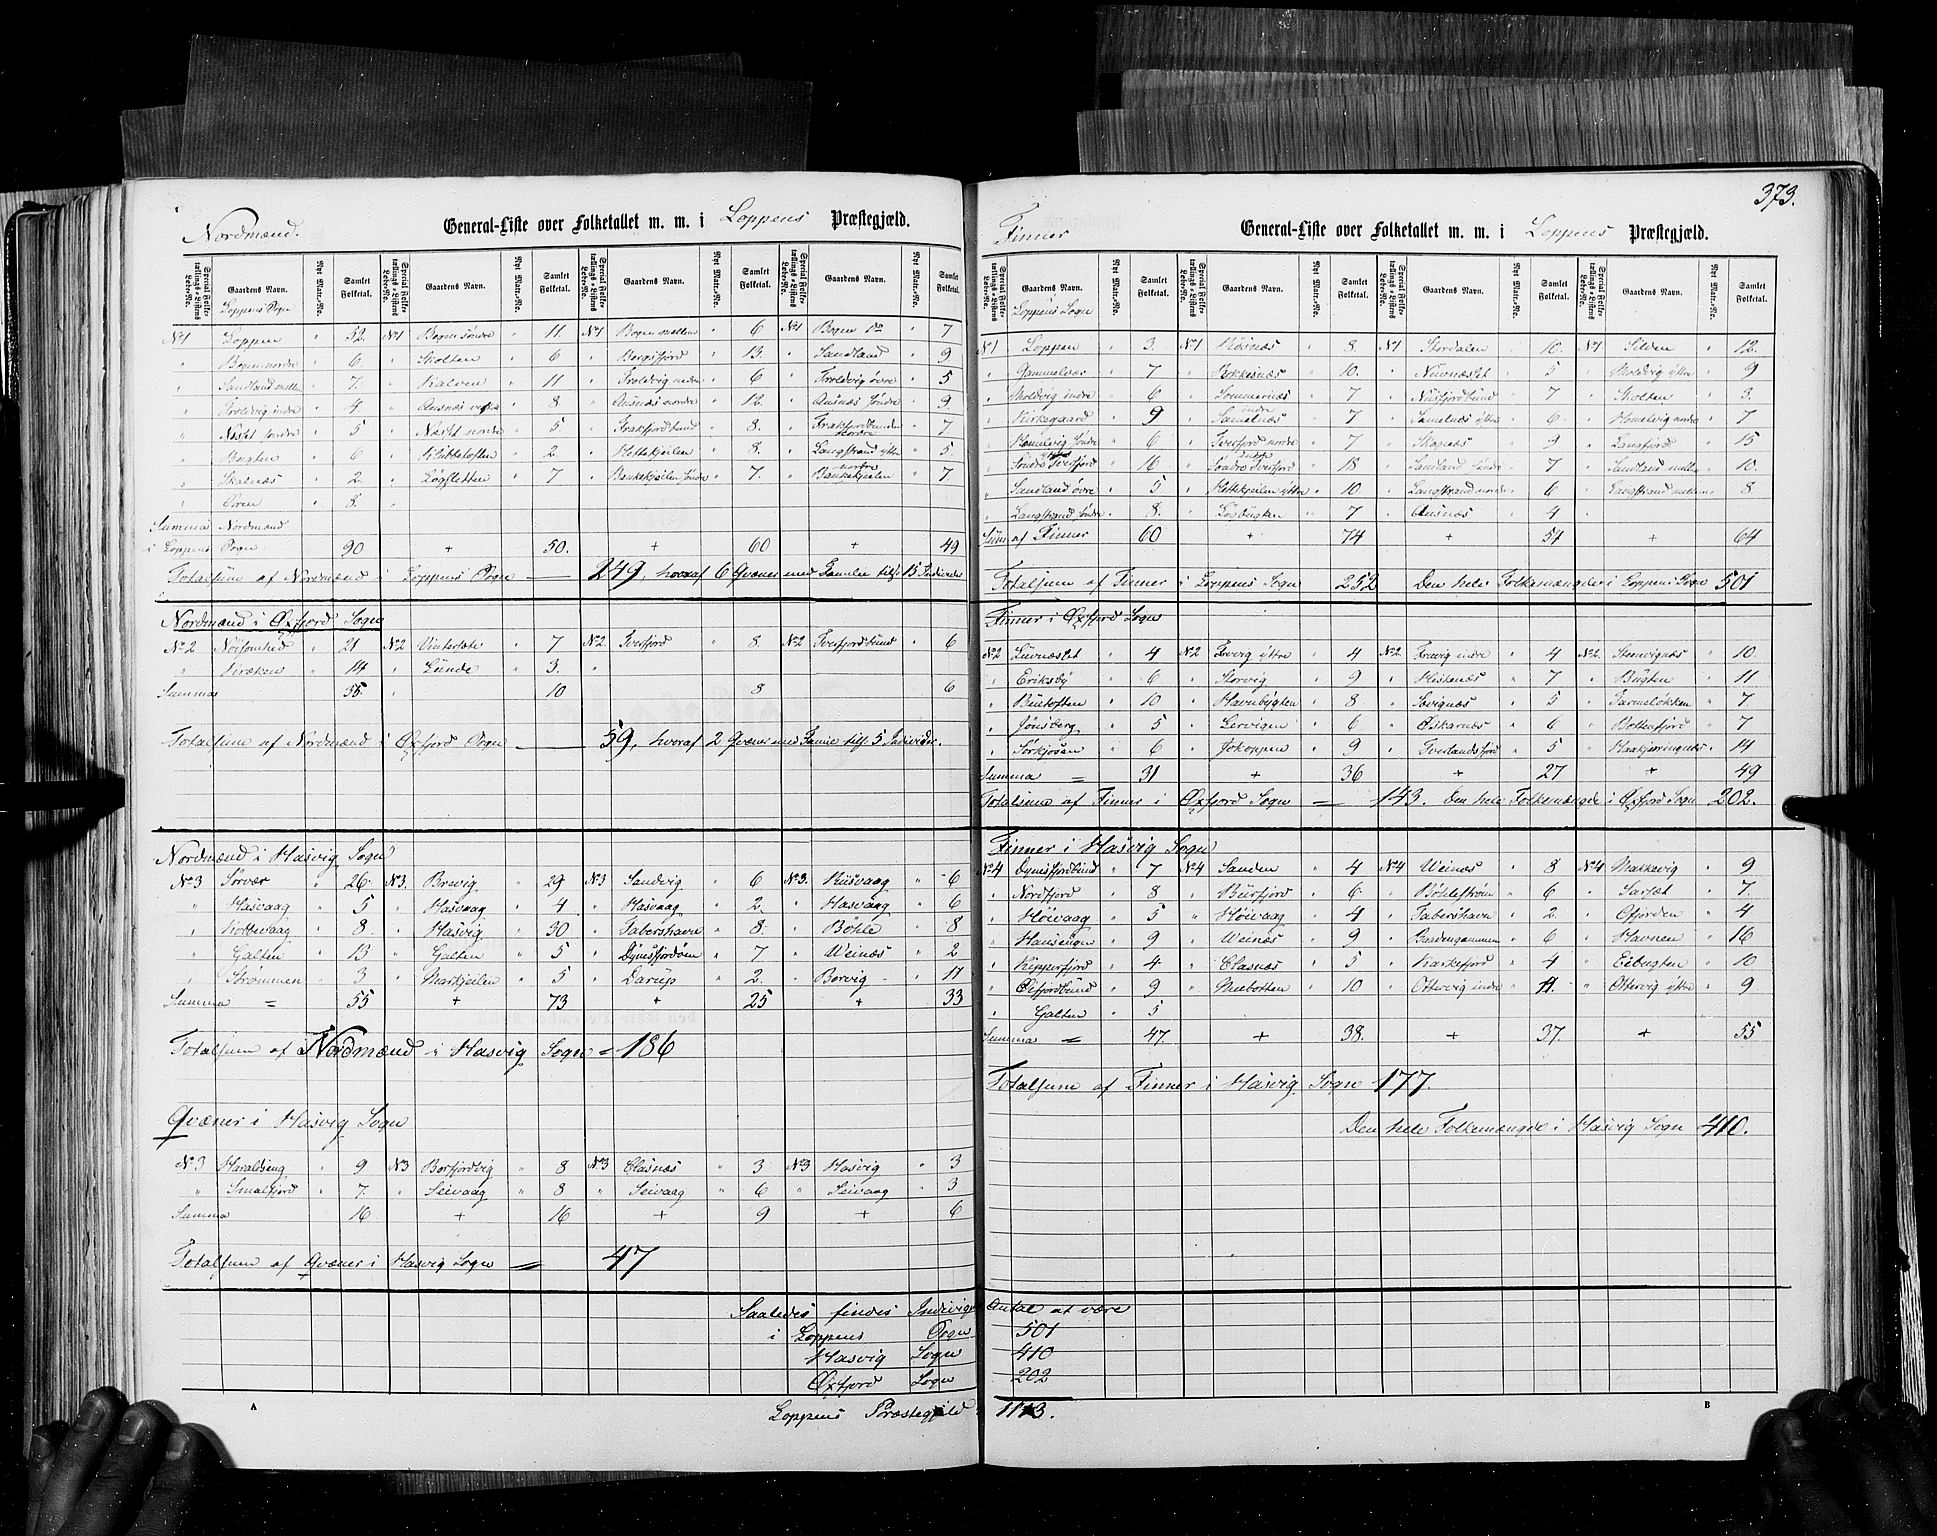 Nordmænd. General-Liste over Folketallet m. m. i Loppens Præstegjæld.
Special Folketællings-Listens Løbe-No. Gaardens Navn. Nyt Matr.-No. Samlet Folketal. Special Folketællings-Listens Løbe-No. Gaardens Navn. Nyt Matr.-No. Samlet Folketal. Special Folketællings-Listens Løbe-No. Gaardens Navn. Nyt Matr.-No. Samlet Folketal. Special Folketællings-Listens Løbe-No. Gaardens Navn. Nyt Matr.-No. Samlet Folketal.
Loppens Sogn
No 1 Loppen " 52. No 1 Bogen søndre " 11 No 1 Bogen mellem " 6 No 1 Bogen " 7
" Bogen nordre " 6. " Skolten " 6 " Bergsfjord " 13. " Sandland " 9
" Sandland mellem " 7. " Kalven " 11 " Troldvig nedre " 6 " Troldvig øvre " 5
" Troldvig indre " 4 " Ausnæs " 8 " Ausnæs nordre " 12. " Ausnæs søndre " 9.
" Næset søndre " 5 " Næset nordre " 5 " Frakfjordbund " 8. " Frakfjordbunden nordre " 7.
" Bugten " 6 " Klubbetoften " 2 " Hettekjeilen " 8. " Langstrand yttre " 5.
" Skalnæs " 2. " Løgsletten " 7 " Bankekjeilen søndre " 7. " Bankekjeilen nordre " 7
" Øren " 8. "
Summa Nordmænd
i Loppens Sogn 90 + 50. + 60 + 49
Totalsum af Nordmænd i Loppens Sogn — 249, hvoraf 6 Qvæner med Familie tils. 15 Individer
Nordmænd i Øxfjord Sogn
No 2 Nøisomhed " 21 No 2 Vintertæte " 7 No 2. Tverfjord " 8. No 2 Tverfjordbund " 6
" Viræken " 14 " Lünde " 3. "
Summa 35. " 10 8 6
Totalsum af Nordmænd i Øxfjord Sogn — 59, hvoraf 2 Qvæner med Famie till. 5 Individer.
Nordmænd i Hasvig Sogn
No 3 Sørvær " 26. No 3. Brevig " 29 No 3 Sandvig " 6 No 3. Riisvaag " 6
" Hasvaag " 5 " Hasvaag " 4 " Hasvaag " 2. " Hasvaag " 6
" Kottevaag " 8. " Hasvig " 30 " Fabershavn " 8. " Bøhle " 8
" Galten " 13 " Galten " 5 " Dynesfjorden " 7 " Weinæs " 2
" Strømmen " 3 " Markjeilen " 5 " Darup " 2. " Borvig - 11
Summa = 55 + 73 + 25 + 33
Totalsum af Nordmænd i Hasvig Sogn = 186
Qvæner i Hasvig Sogn
No 3 Haraldseng " 9 No 3 Borfjordvig " 8 No 3 Clasnæs " 3 No 3 Hasvig " 3
" Smalfjord " 7. " Seivaag " 8 " Seivaag " 6 " Seivaag " 3
Summa 16 + 16 + 9 + 6
Totalsum af Qvæner i Hasvig Sogn = 47
A
373.
Finner General-Liste over Folketallet m. m. i Loppens Præstegjæld.
Special Folketællings-Listens Løbe-No. Gaardens Navn. Nyt Matr.-No. Samlet Folketal. Special Folketællings-Listens Løbe-No. Gaardens Navn. Nyt Matr.-No. Samlet Folketal. Special Folketællings-Listens Løbe-No. Gaardens Navn. Nyt Matr.-No. Samlet Folketal. Special Folketællings-Listens Løbe-No. Gaardens Navn. Nyt Matr.-No. Samlet Folketal.
i Loppens Sogn
No 1 Loppen " 3. No 1 Røsnæs " 8 No 1 Stordalen " 10. No 1 Silden " 12.
" Gammelvær " 7 " Kokkesnæs " 10. " Nuvnæslet " 5 " Skoldvig yttre " 9
" Skoldvig indre " 6 " Sommernæs " 7 " Nüsfjordbund " 7 " Skolten " 3.
" Kirkegaard " 9 " Samelnæs indre " 7 " Samelnæs yttre " 6 " Komelvig nordre " 7
" Komelvig søndre " 6 " Tverfjord nordre " 7 " Skognæs " 9 " Langfjord " 15
" Søndre Tverfjord " 16 " Søndre Tverfjord " 18 " Sandland søndre " 7 " Sandland mellem " 10.
" Sandland øvre " 5. " Hettekjeilen yttre " 10. " Langstrand nordre " 6 " Langstrand mellem " 8
" Langstrand søndre " 8. " Løgbugten " 7 " Ausnæs " 4 "
Sum af Finner 60 + 74 + 54 + 64
Totalsum af Finner i Loppens Sogn 252 Den hele Folkemængde i Loppens Sogn 501
Finner i Øxfjord Sogn
No 2 Luvnæslet " 4 No 2 Ervvig yttre " 4 No 2. Ervvig indre " 4 No 2. Stenvignæs " 10.
" Eriksby " 6 " Storvig " 9 " Heskenæs " 7 " Bugten " 11
" Büetoften " 10 " Havnbygten " 8 " Sævignæs " 5 " Garmeløkken " 7
" Jønsberg " 5 " Lervigen " 6 " Oskarnæs " 6 " Bottenfjord " 7
" Sørkjosen " 6 " Jokoppen " 9 " Tverlandsfjord " 5 " Haakjerringnæs " 14
Summa = 31 + 36 + 27 + 49
Totalsum af Finner i Øxfjord Sogn = 143. Den hele Folkemængde i Øxfjord Sogn 202.
Finner i Hasvig Sogn
No 4 Dynesfjordbund " 7 No 4 Sanden " 4 No 4 Weinæs " 8 No 4 Makkevig " 9
" Nordfjord " 8 " Bürfjord " 6. " Bøhlestrøm " 6 " Sarlæt " 7
" Høivaag " 5 " Høivaag " 4 " Fabershavn " 2. " Ofjorden " 4
" Hanseng " 9 " Weinæs " 9 " Bardengammen " 6 " Havnen " 16
" Kipperfjord " 4 " Clasnæs " 5 " Karkefjord " 4 " Eibugten " 10
" Øifjordbund " 9 " Miebotten " 10 " Ottervig indre " 11. " Ottervig yttre " 9
" Galten " 5
Summa = 47. + 38. + 37. + 55
Totalsum af Finner i Hasvig Sogn 177.
Den hele Folkemængde i Hasvig Sogn 410.
Saaledes findes Individ Antal at være
i Loppens Sogn 501
Hasvig Sogn 410
Øxfjord Sogn 202
Loppens Præstegjeld 1113.
B